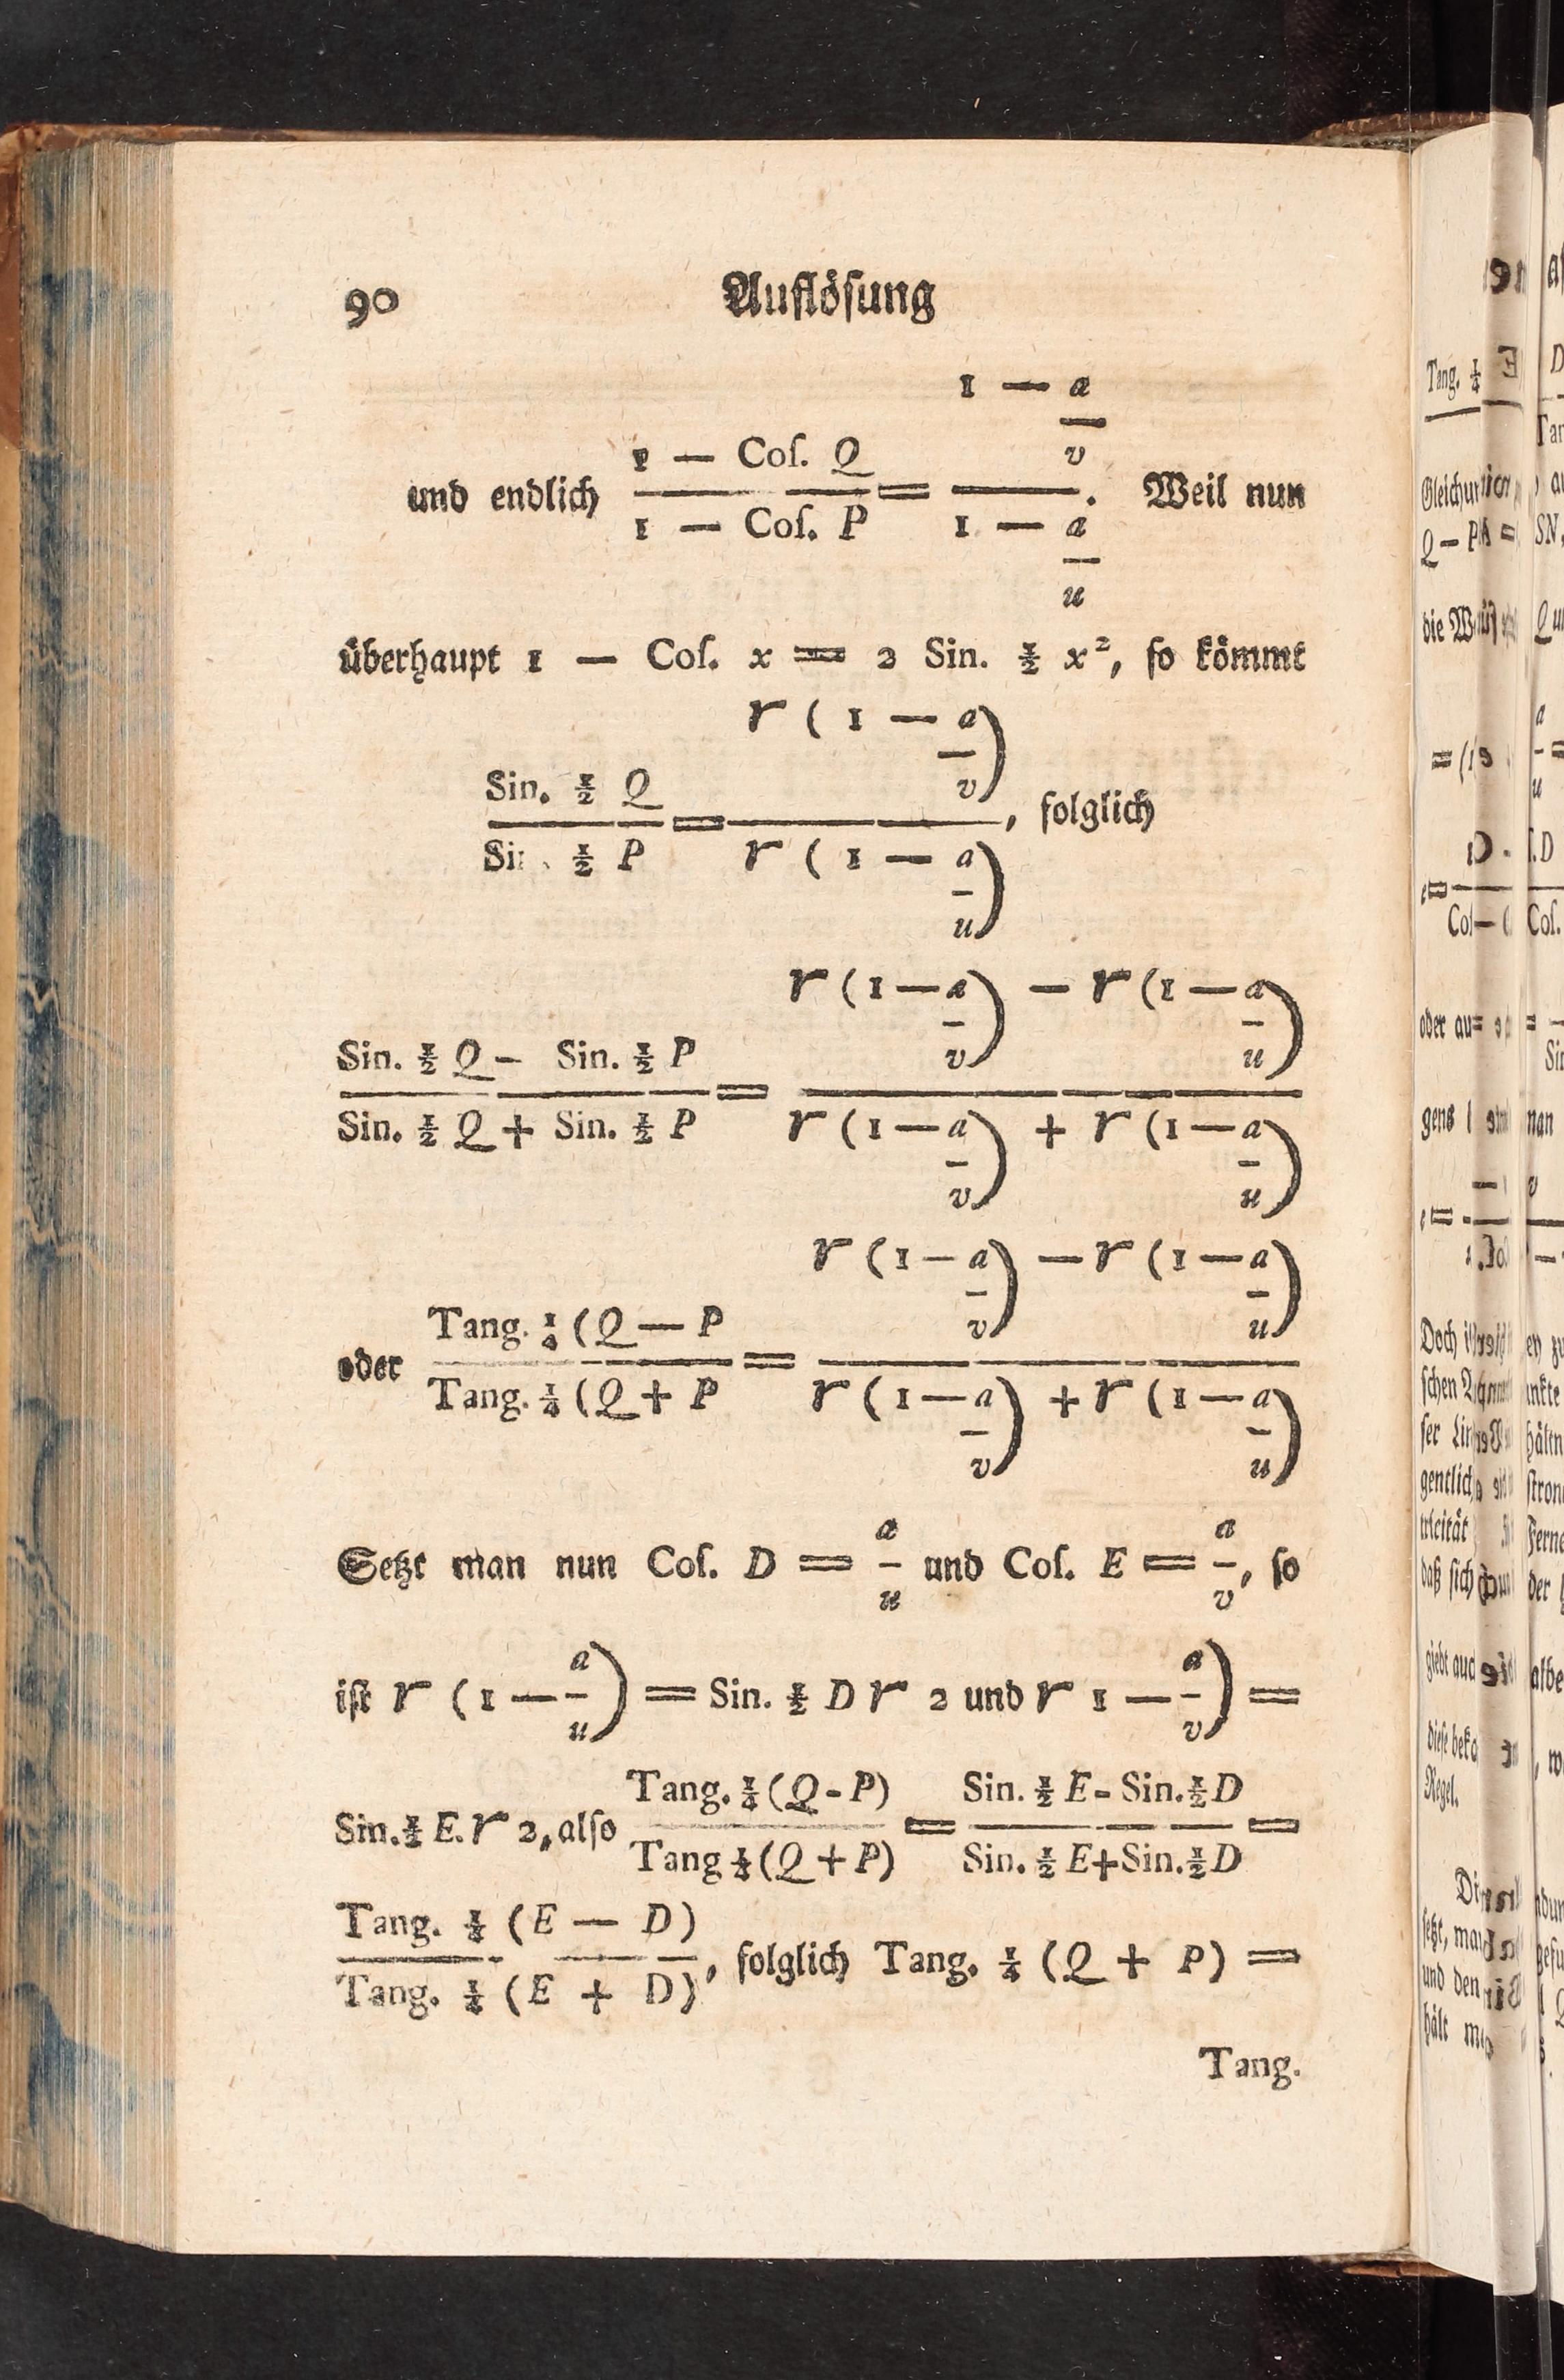 90 Auflösung
und endlich (1 — Coſ. Q)/(1 — Coſ. P) = (1 — a/v)/(1 — a/u). Weil nun
überhaupt 1 — Coſ. x = 2 Sin. ½ x², ſo kömmt
(Sin. ½ Q)/(Sin. ½ P) = (r (1 — a/v))/(r (1 — a/u)), folglich
(Sin. ½ Q - Sin. ½ P)/(Sin. ½ Q + Sin. ½ P) = (r (1 — a/v) — r (1 — a/u))/(r (1 — a/v) + r (1 — a/u))
oder (Tang. ¼ (Q — P)/(Tang. ¼ (Q + P) = (r (1 — a/v) — r (1 — a/u))/(r (1 — a/v) + r (1 — a/u))
Setzt man nun Coſ. D = a/u und Coſ. E = a/v, ſo
iſt r (1 — a/u) = Sin. ½ D r 2 und r 1 — a/v) =
Sin. ½ E. r 2, alſo (Tang. ¼ (Q - P))/(Tang ¼ (Q + P)) = (Sin. ½ E - Sin. ½ D)/(Sin. ½ E + Sin. ½ D) =
(Tang. ¼ (E — D))/(Tang. ¼ (E + D)), folglich Tang. ¼ (Q + P) =
Tang.